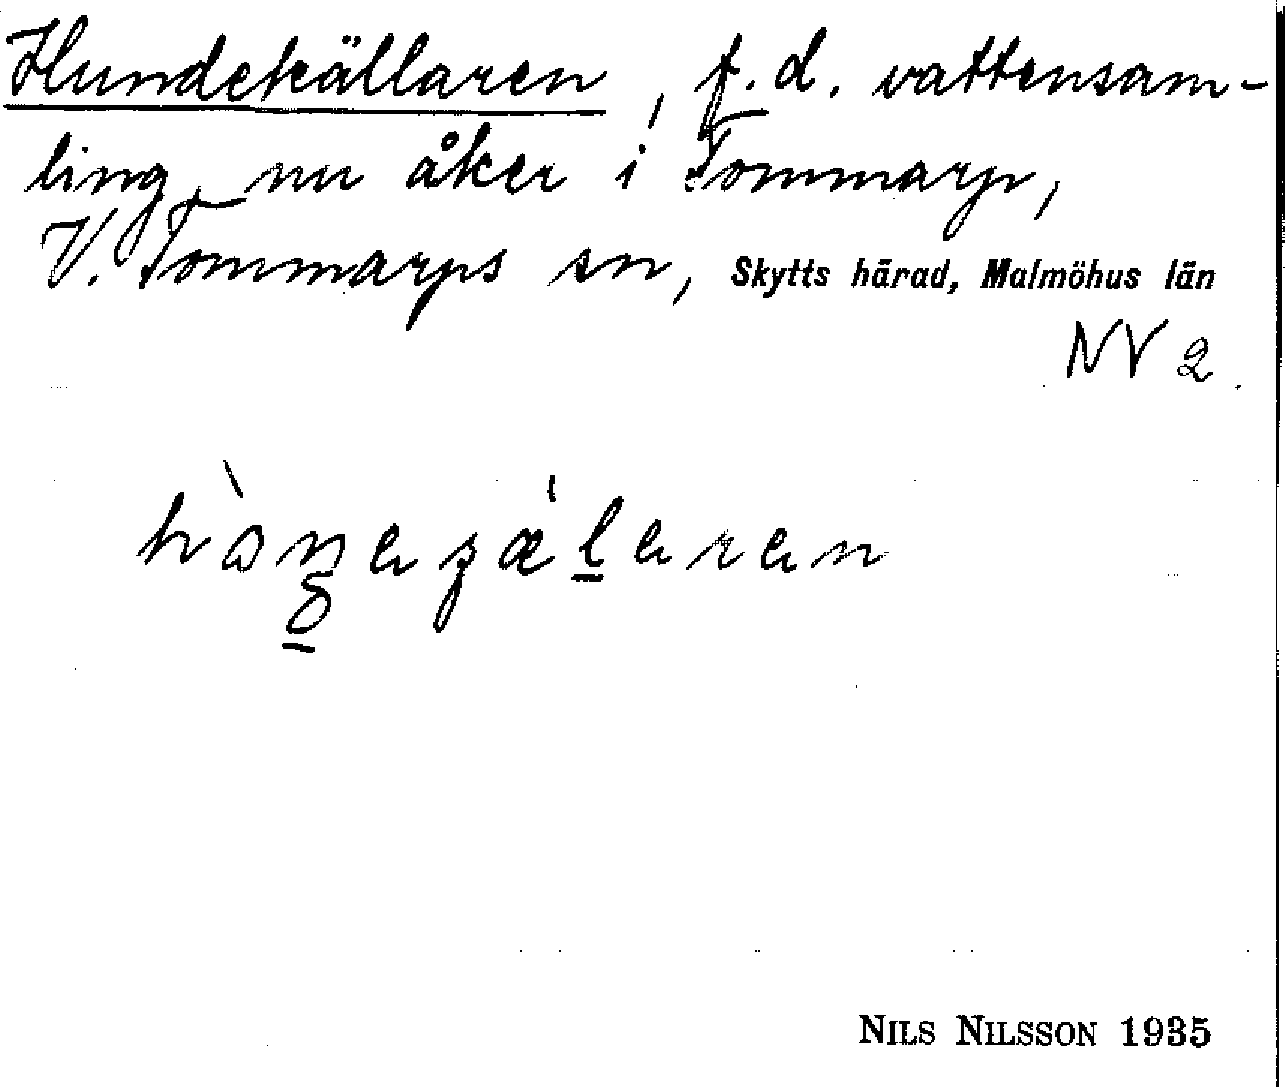 Hundekällaren, f.d. vattensam-
ling, nu åker i Tommarp,
V. Tommarps sn, Skytts härad, Malmöhus län
NV 2.
NILS NILSSON 1935